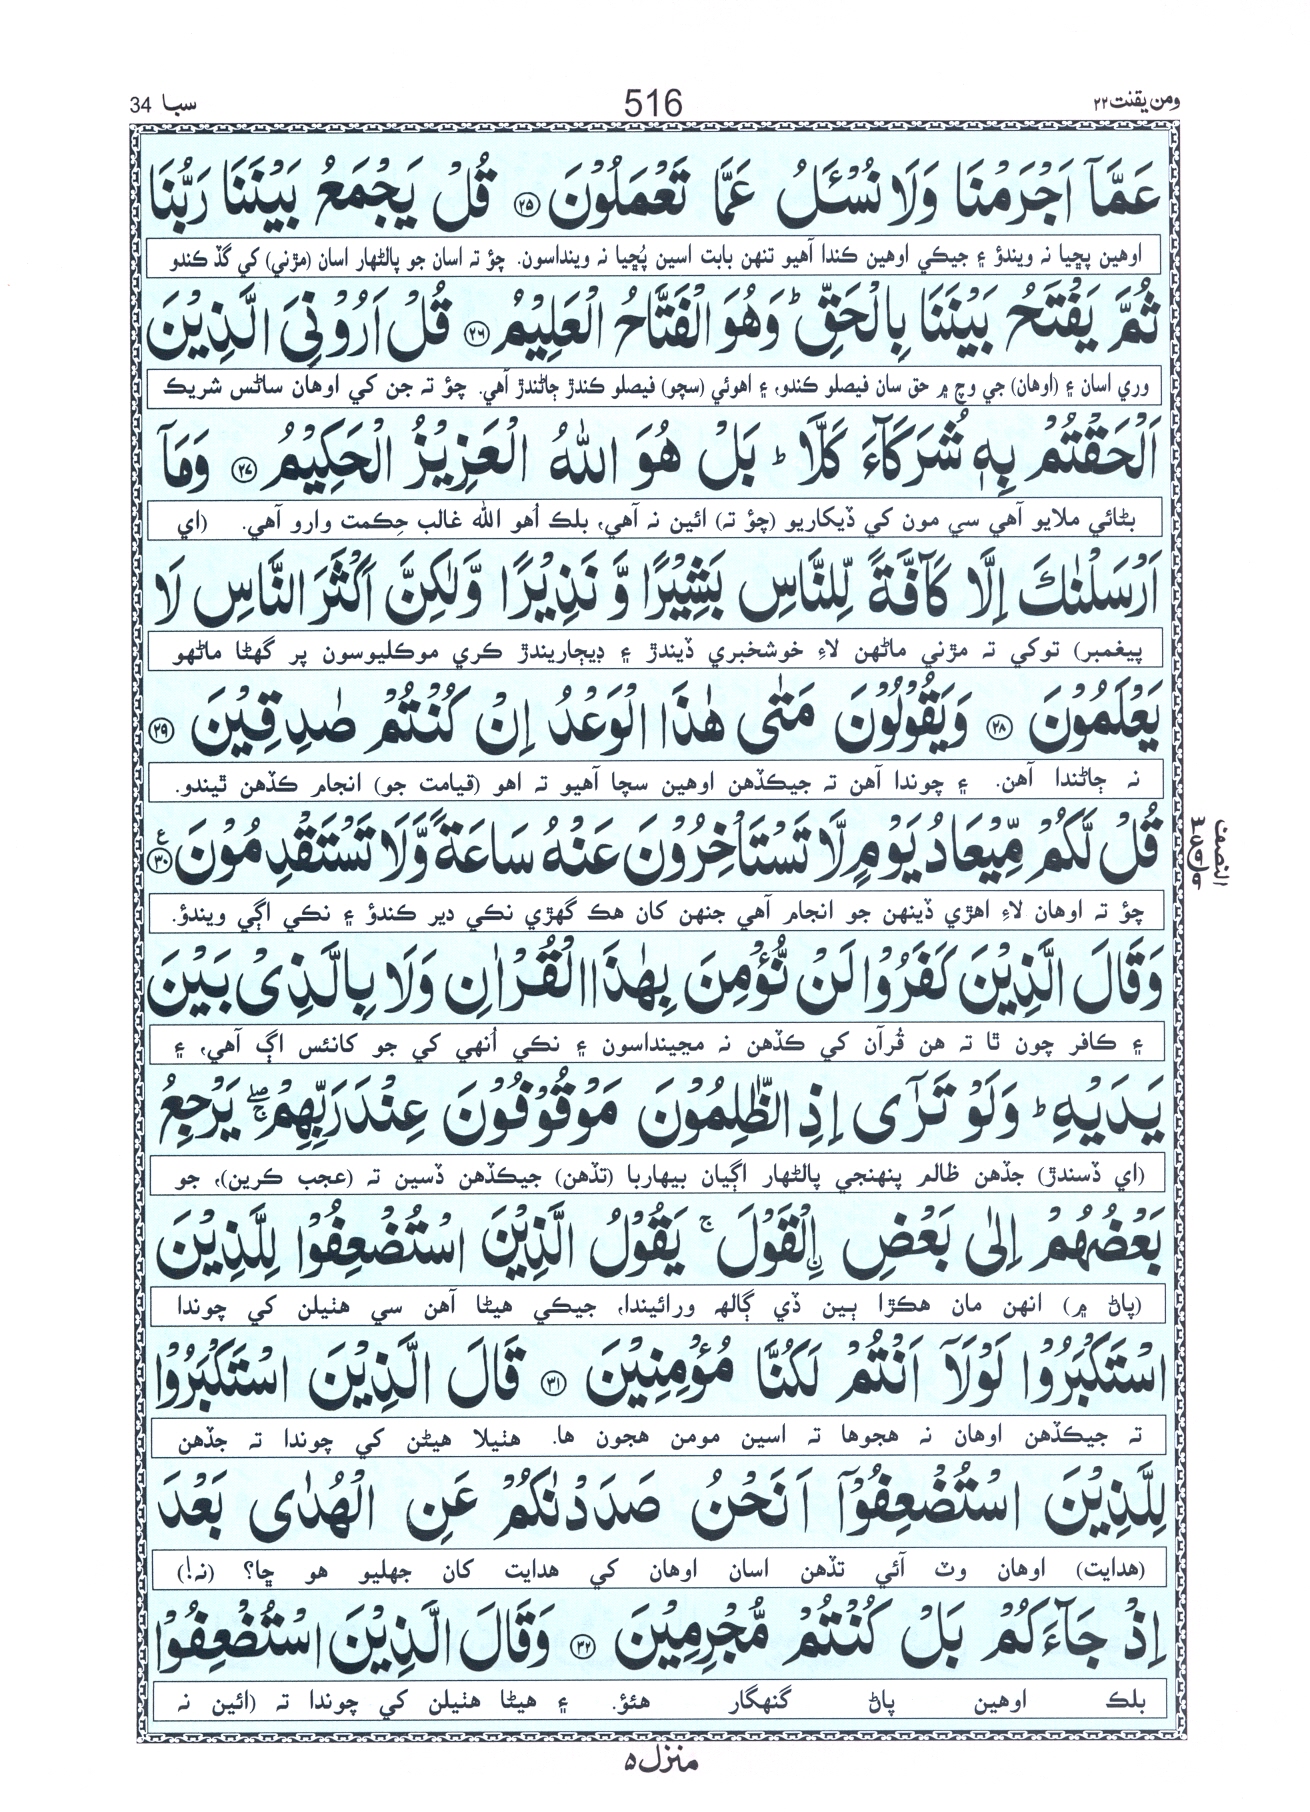 ومن يقنت ٢٢
516
سبا 34
عَمَّآ اَجْرَمْنَا وَلَا نُسْـَٔلُ عَمَّا تَعْمَلُوْنَ ﴿٢٥﴾ قُلْ يَجْمَعُ بَيْنَنَا رَبُّنَا
اوهين پڇيا نہ ويندؤ ۽ جيڪي اوهين ڪندا آهيو تنهن بابت اسين پُڇيا نہ وينداسون. چؤ تہ اسان جو پالڻهار اسان (مڙني) کي گڏ ڪندو
ثُمَّ يَفْتَحُ بَيْنَنَا بِالْحَقِّ ؕ وَهُوَ الْفَتَّاحُ الْعَلِيْمُ ﴿٢٦﴾ قُلْ اَرُوْنِيَ الَّذِيْنَ
وري اسان ۽ (اوهان) جي وچ ۾ حق سان فيصلو ڪندو، ۽ اهوئي (سچو) فيصلو ڪندڙ ڄاڻندڙ آهي. چؤ تہ جن کي اوهان ساڻس شريڪ
اَلْحَقْتُمْ بِهٖ شُرَكَآءَ كَلَّا ؕ بَلْ هُوَ اللّٰهُ الْعَزِيْزُ الْحَكِيْمُ ﴿٢٧﴾ وَمَآ
بڻائي ملايو آهي سي مون کي ڏيکاريو (چؤ تہ) ائين نہ آهي، بلڪ اُهو الله غالب حِڪمت وارو آهي. (اي
اَرْسَلْنٰكَ اِلَّا كَآفَّةً لِّلنَّاسِ بَشِيْرًا وَّ نَذِيْرًا وَّلٰكِنَّ اَكْثَرَ النَّاسِ لَا
پيغمبر) توکي تہ مڙني ماڻهن لاءِ خوشخبري ڏيندڙ ۽ ڊيڄاريندڙ ڪري موڪليوسون پر گهڻا ماڻهو
يَعْلَمُوْنَ ﴿٢٨﴾ وَيَقُوْلُوْنَ مَتٰى هٰذَا الْوَعْدُ اِنْ كُنْتُمْ صٰدِقِيْنَ ﴿٢٩﴾
نہ ڄاڻندا آهن. ۽ چوندا آهن تہ جيڪڏهن اوهين سچا آهيو تہ اهو (قيامت جو) انجام ڪڏهن ٿيندو.
قُلْ لَّكُمْ مِّيْعَادُ يَوْمٍ لَّا تَسْتَاْخِرُوْنَ عَنْهُ سَاعَةً وَّلَا تَسْتَقْدِمُوْنَ ﴿٣٠﴾ ع
النصف
چؤ تہ اوهان لاءِ اهڙي ڏينهن جو انجام آهي جنهن کان هڪ گهڙي نڪي دير ڪندؤ ۽ نڪي اڳي ويندؤ.
وَقَالَ الَّذِيْنَ كَفَرُوْا لَنْ نُّؤْمِنَ بِهٰذَا الْقُرْاٰنِ وَلَا بِالَّذِىْ بَيْنَ
۽ ڪافر چون ٿا تہ هن قُرآن کي ڪڏهن نہ مڃينداسون ۽ نڪي اُنهي کي جو کانئس اڳ آهي، ۽
يَدَيْهِ ؕ وَلَوْ تَرٰٓى اِذِ الظّٰلِمُوْنَ مَوْقُوْفُوْنَ عِنْدَ رَبِّهِمْ ۖۚ يَرْجِعُ
(اي ڏسندڙ) جڏهن ظالم پنهنجي پالڻهار اڳيان بيهاربا (تڏهن) جيڪڏهن ڏسين تہ (عجب ڪرين)، جو
بَعْضُهُمْ اِلٰى بَعْضِ ۨالْقَوْلَ ۚ يَقُوْلُ الَّذِيْنَ اسْتُضْعِفُوْا لِلَّذِيْنَ
(پاڻ ۾) انهن مان هڪڙا ٻين ڏي ڳالهہ ورائيندا، جيڪي هيڻا آهن سي هٺيلن کي چوندا
اسْتَكْبَرُوْا لَوْلَآ اَنْتُمْ لَكُنَّا مُؤْمِنِيْنَ ﴿٣١﴾ قَالَ الَّذِيْنَ اسْتَكْبَرُوْا
تہ جيڪڏهن اوهان نہ هجوها تہ اسين مومن هجون ها. هٺيلا هيڻن کي چوندا تہ جڏهن
لِلَّذِيْنَ اسْتُضْعِفُوْٓا اَنَحْنُ صَدَدْنٰكُمْ عَنِ الْهُدٰى بَعْدَ
(هدايت) اوهان وٽ آئي تڏهن اسان اوهان کي هدايت کان جهليو هو ڇا؟ (نہ!)
اِذْ جَآءَكُمْ بَلْ كُنْتُمْ مُّجْرِمِيْنَ ﴿٣٢﴾ وَقَالَ الَّذِيْنَ اسْتُضْعِفُوْا
بلڪ اوهين پاڻ گنهگار هئؤ. ۽ هيڻا هٺيلن کي چوندا تہ (ائين نہ
منزل ٥